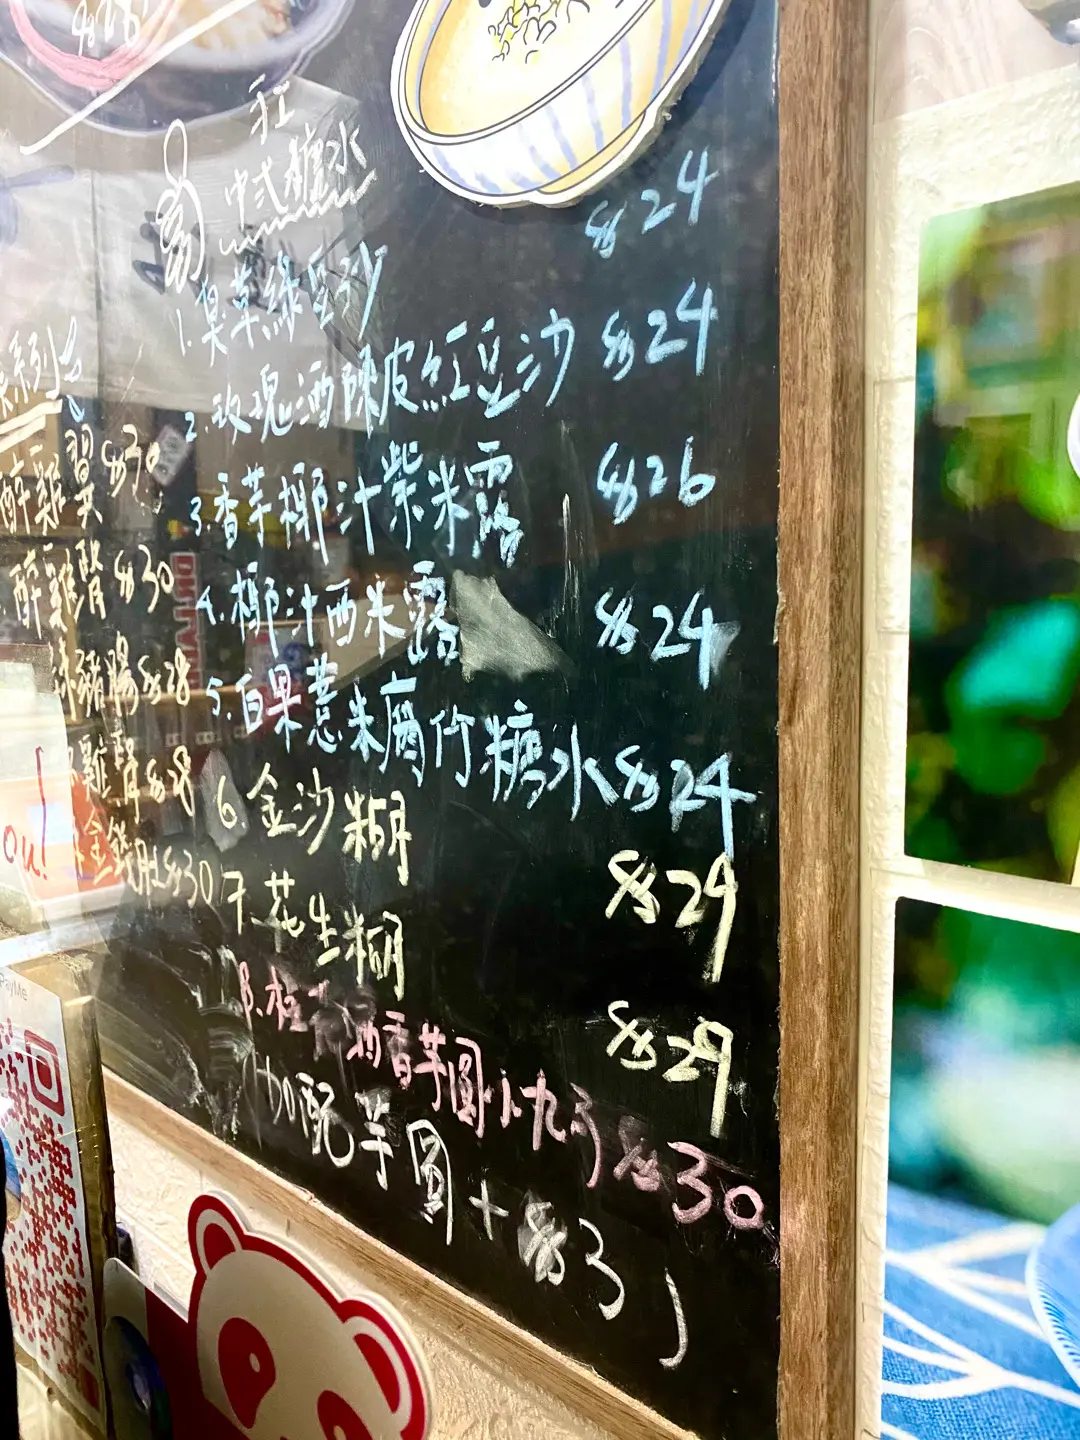 中式糖水
1. 臭草綠豆沙 $24
2. 玫瑰酒陳皮紅豆沙 $24
3. 香芋椰汁紫米露 $26
4. 椰汁西米露 $24
5. 白果薏米腐竹糖水 $24
6. 金沙糊 $29
7. 花生糊 $29
8. 桂花酒香芋圓小丸子 $30
加配芋圓 + $3
系列
醉雞翼 $30
醉雞腎 $30
豬腸 $28
雞腎 $28
金錢肚 $30
ou!
PayMe